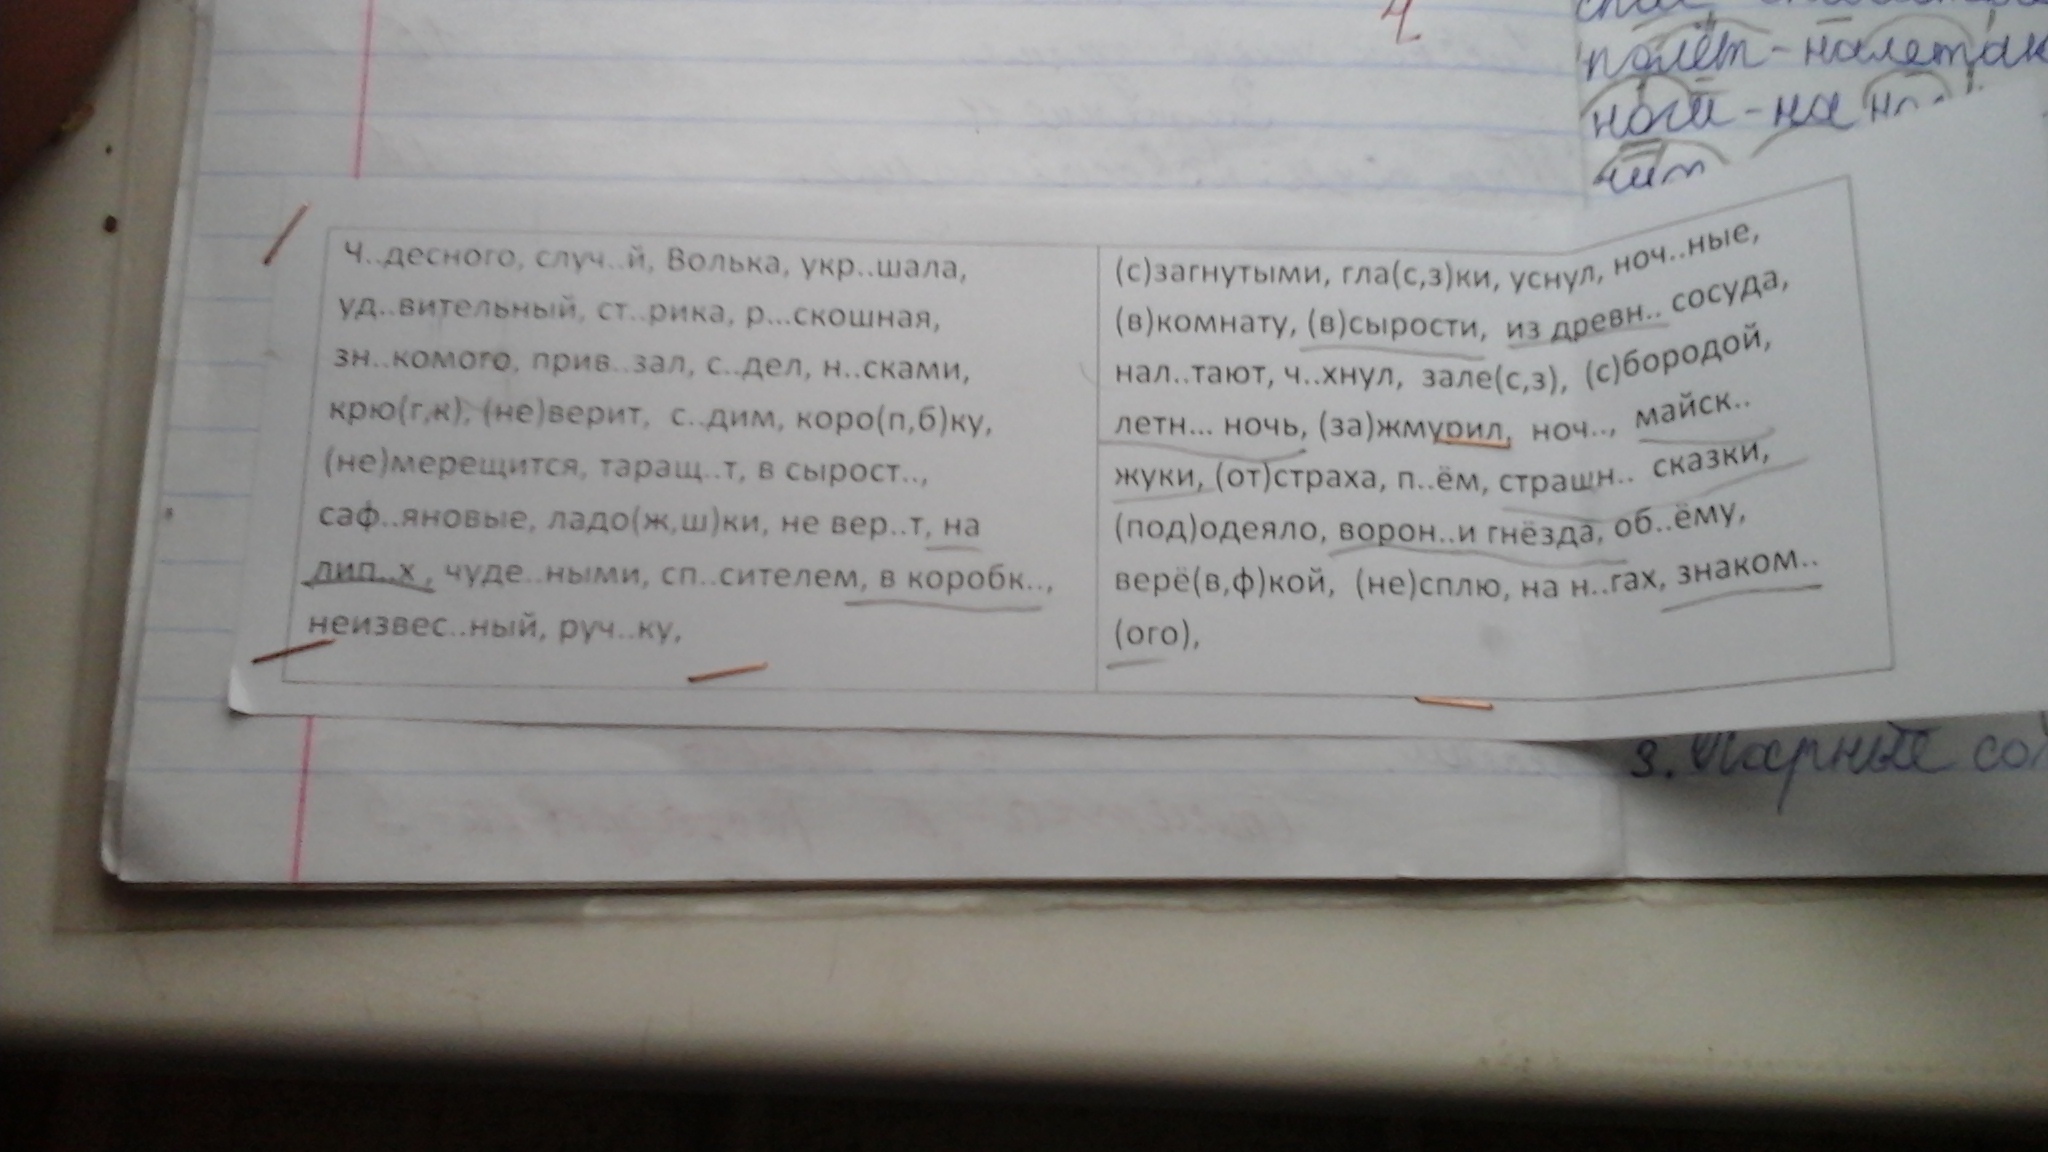 Ч..десного, случ..й, Волька, укр..шала,
уд..вительный, ст..рика, р...скошная,
зн..комого, прив..зал, с..дел, н..сками,
крю(г,к), (не)верит, с..дим, коро(п,б)ку,
(не)мерещится, таращ..т, в сырост..,
саф..яновые, ладо(ж,ш)ки, не вер..т, на
лип..х, чуде..ными, сп..сителем, в коробк..,
неизвес..ный, руч..ку,
(с)загнутыми, гла(с,з)ки, уснул, ноч..ные,
(в)комнату, (в)сырости, из древн.. сосуда,
нал..тают, ч..хнул, зале(с,з), (с)бородой,
летн... ночь, (за)жмурил, ноч.., майск..
жуки, (от)страха, п..ём, страшн.. сказки,
(под)одеяло, ворон..и гнёзда, об..ёму,
верё(в,ф)кой, (не)сплю, на н..гах, знаком..
(ого),
4
полёт - налетаю
ноги - на
3. Парные